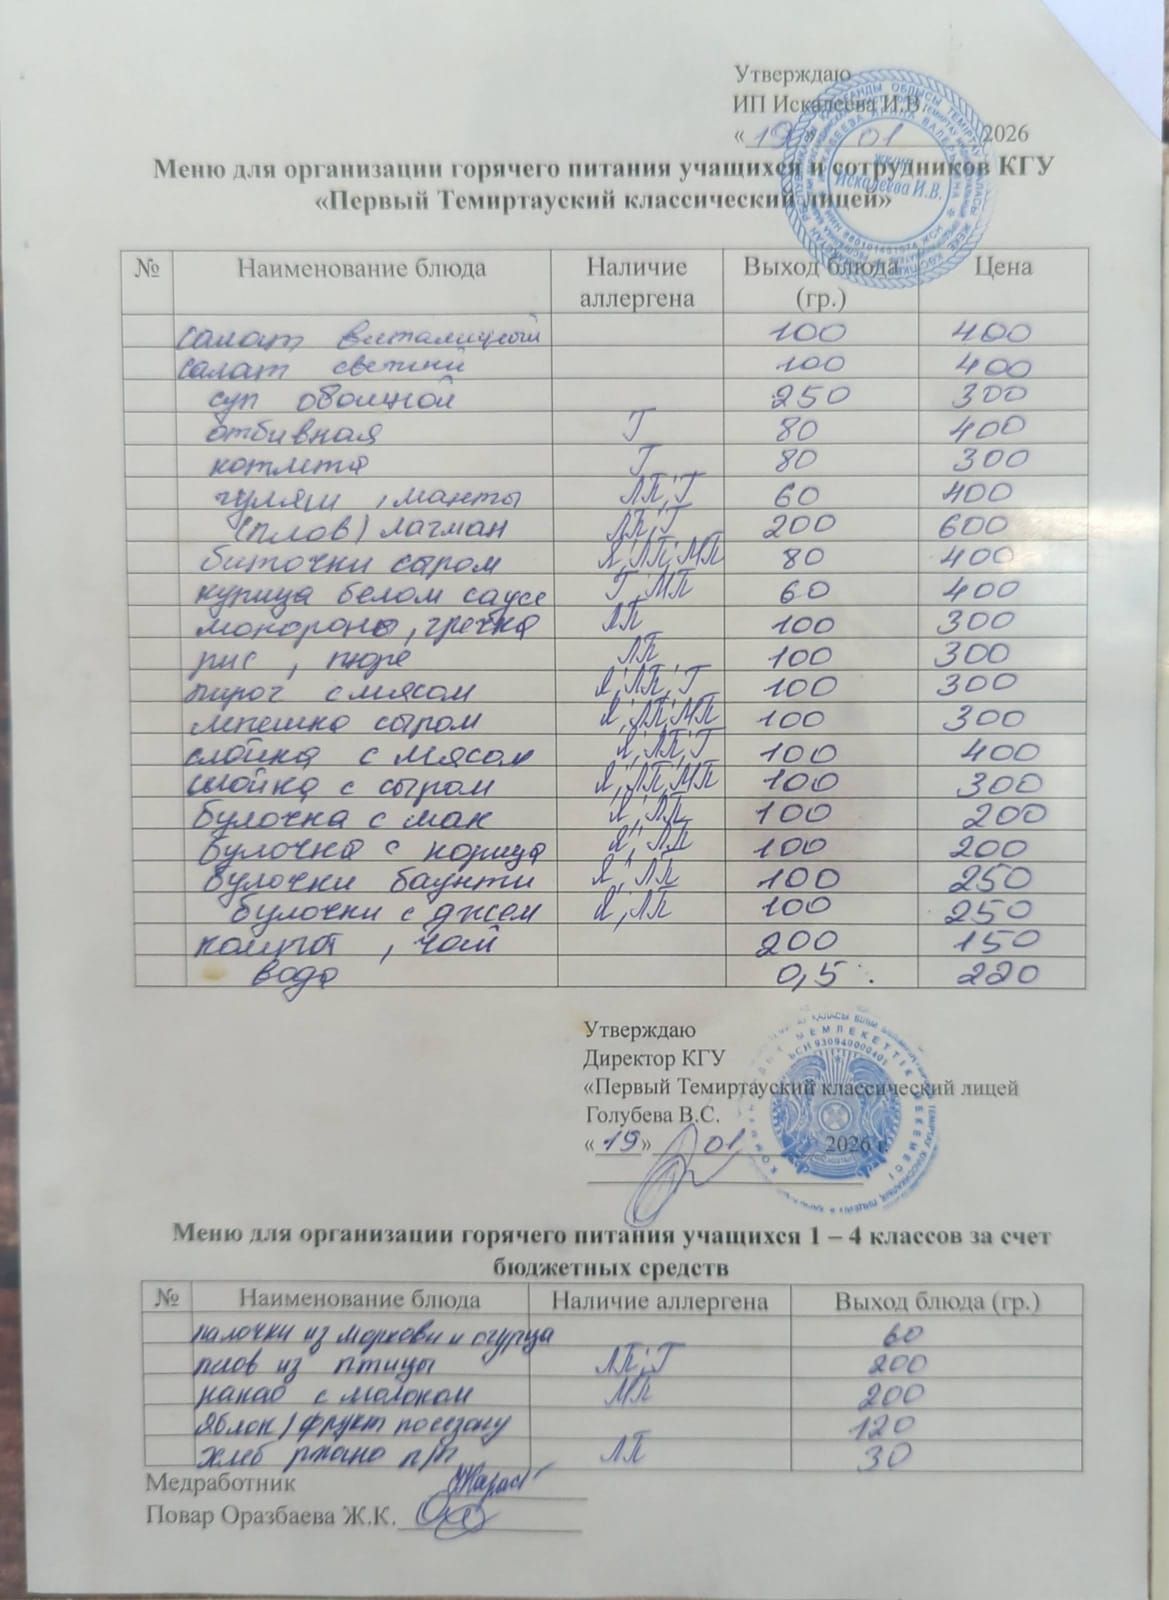 Утверждаю
ИП Искалеева И.В.
«19» 01 2026
Меню для организации горячего питания учащихся и сотрудников КГУ
«Первый Темиртауский классический лицей»
№ Наименование блюда Наличие аллергена Выход блюда (гр.) Цена
салат витаминный 100 400
салат свежий 100 400
суп овощной 250 300
отбивная Г 80 400
котлета Г 80 300
гуляш , манты ЛП; Г 60 400
(плов) лагман ЛП; Г 200 600
биточки сыром Я; ЛП; МП 80 400
курица белом соусе Г; МП 60 400
макароны, гречка ЛП 100 300
рис , пюре ЛП 100 300
пирог с мясом Я; ЛП; Г 100 300
лепешка сыром Я; ЛП; МП 100 300
слойка с мясом Я; ЛП; Г 100 400
слойка с сыром Я; ЛП; МП 100 300
булочка с мак Я; ЛП 100 200
булочка с корица Я; ЛП 100 200
булочки баунти Я; ЛП 100 250
булочки с джем Я; ЛП 100 250
компот , чай 200 150
вода 0,5 220
Утверждаю
Директор КГУ
«Первый Темиртауский классический лицей
Голубева В.С.
«19» 01 2026 г.
Меню для организации горячего питания учащихся 1 – 4 классов за счет
бюджетных средств
№ Наименование блюда Наличие аллергена Выход блюда (гр.)
палочки из моркови и огурца 60
плов из птицы ЛП; Г 200
какао с молоком МП 200
яблок/фрукт по сезону 120
хлеб ржано п/п ЛП 30
Медработник
Повар Оразбаева Ж.К.